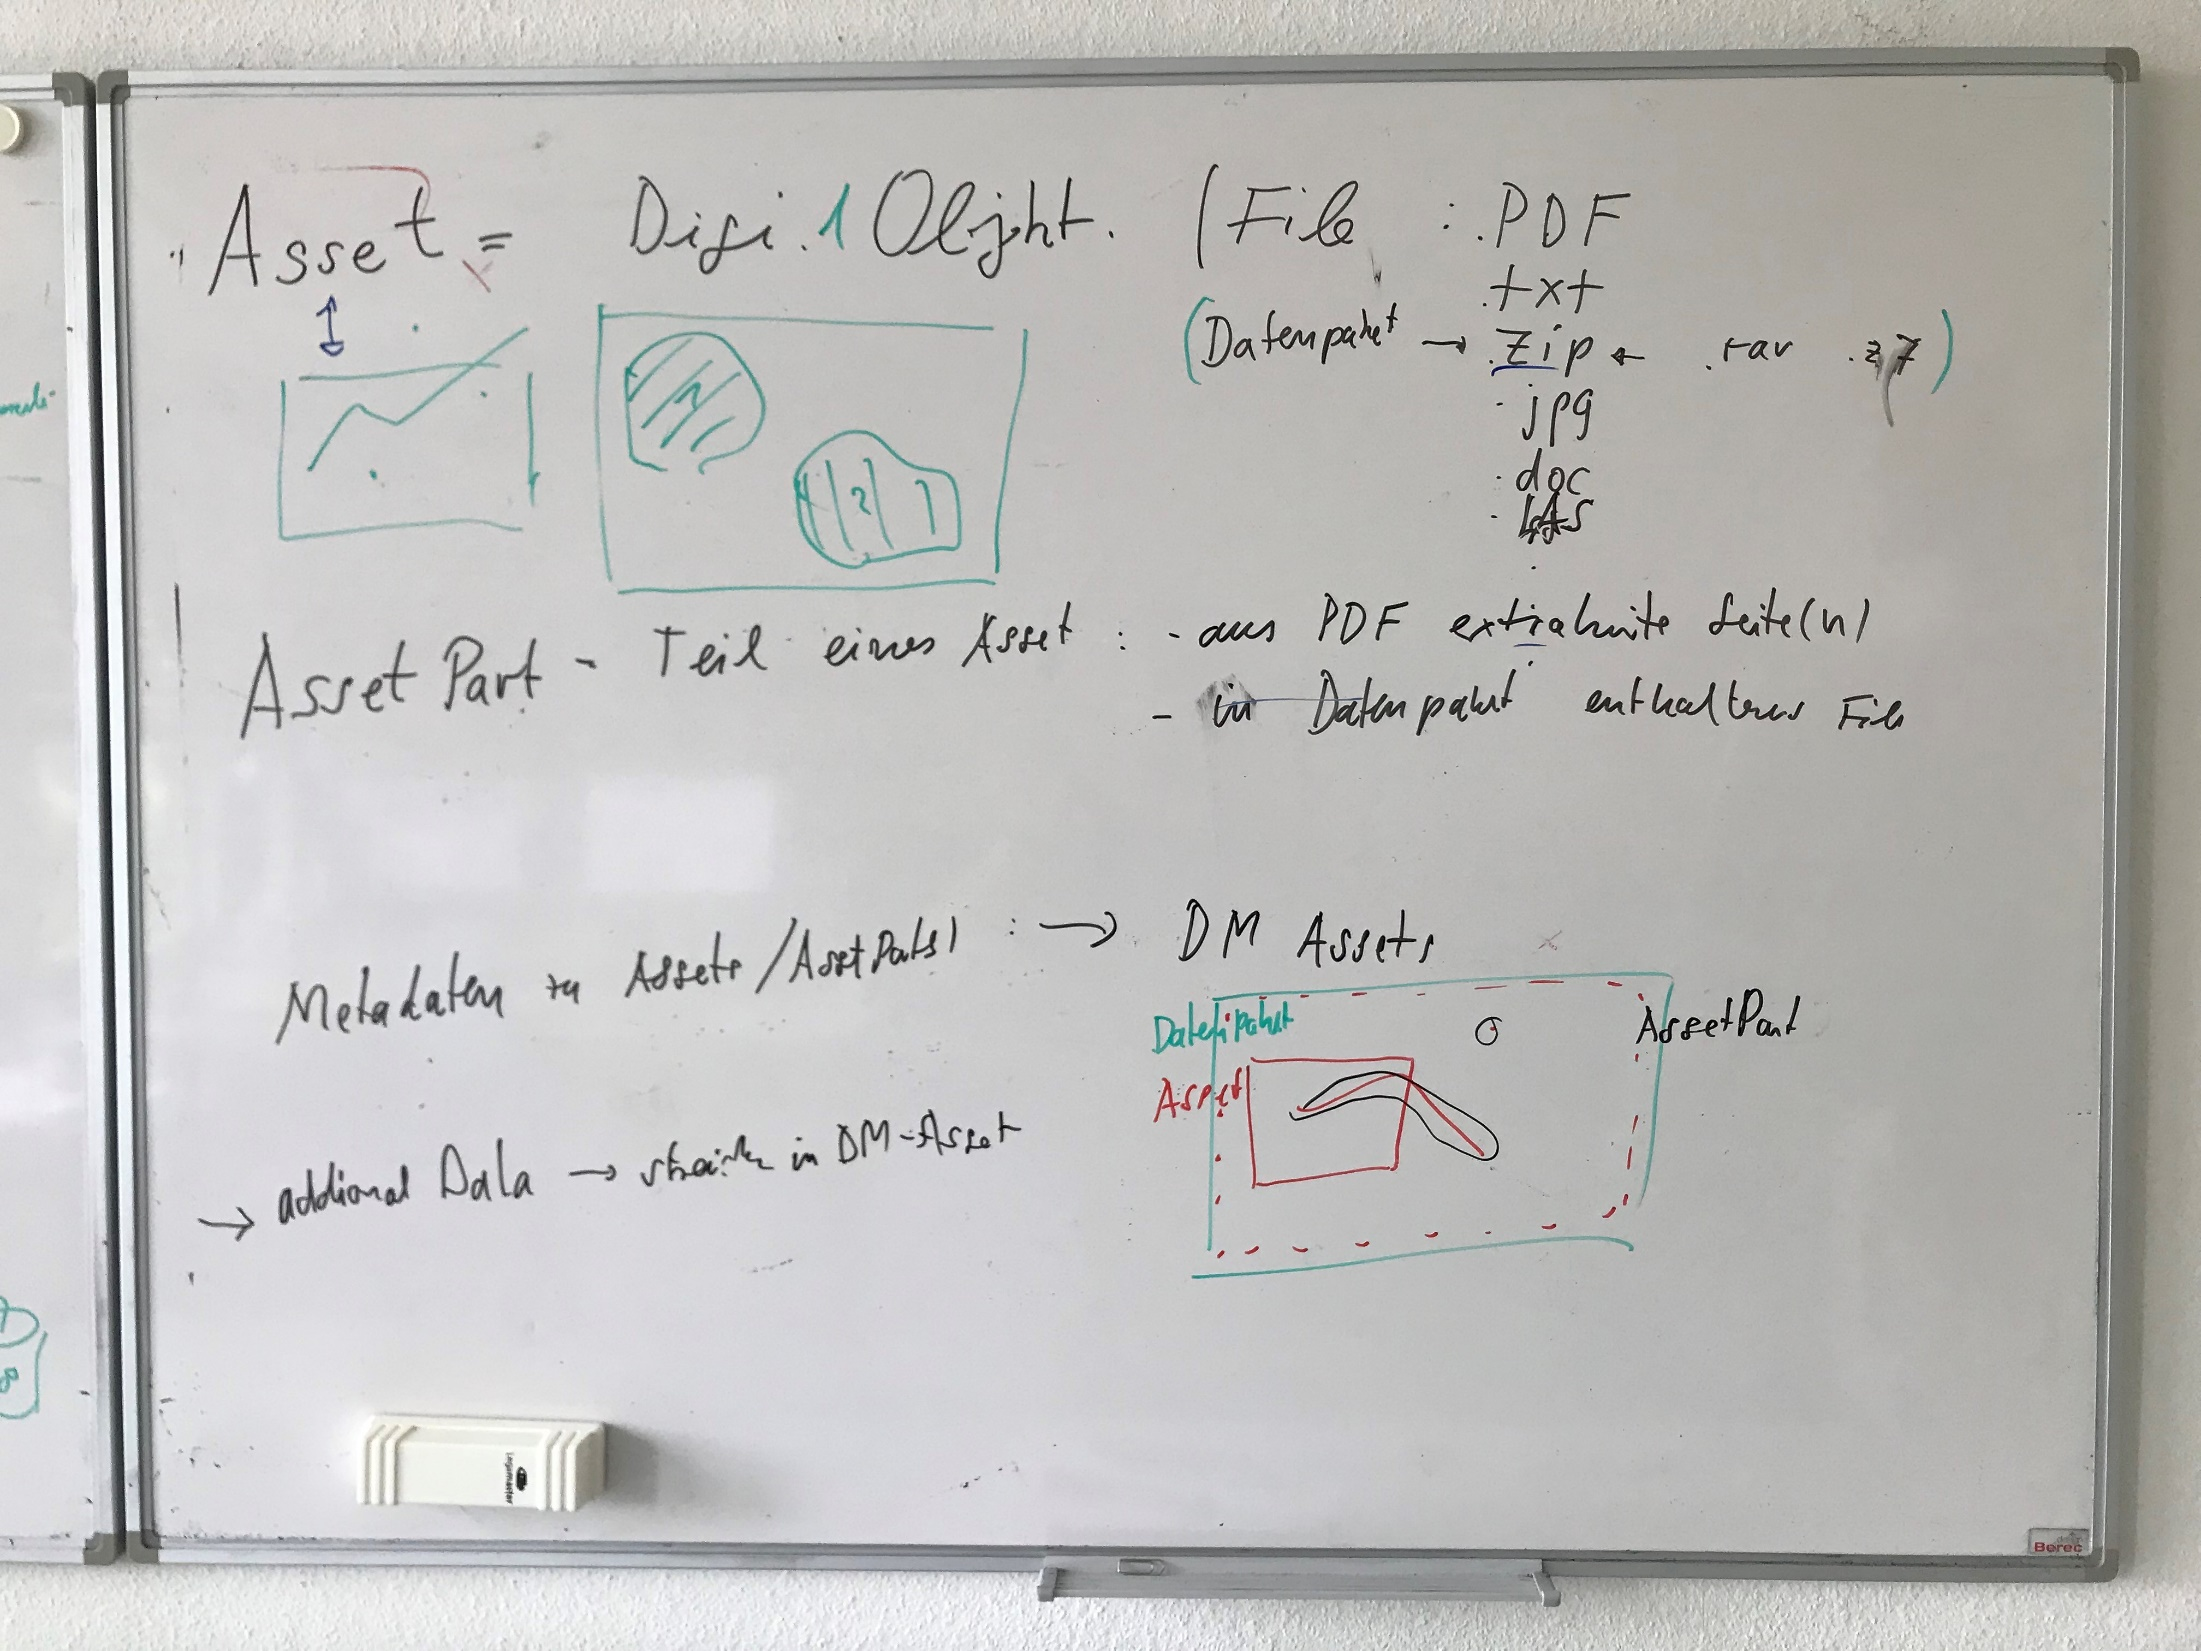 "Asset = Digi. 1 Objekt. (File : .PDF
.txt
(Datenpaket → .zip ← .rar .z7)
.jpg
.doc
.LAS
Asset Part - Teil eines Asset : - aus PDF extrahierte Seite(n)
- in Datenpaket enthaltenes File
Metadaten zu Assets /AssetParts) : → DM Assets
Datenpaket
AssetPart
Asset
→ addional Data → in DM-Asset
2
1
8
legamaster
Berec